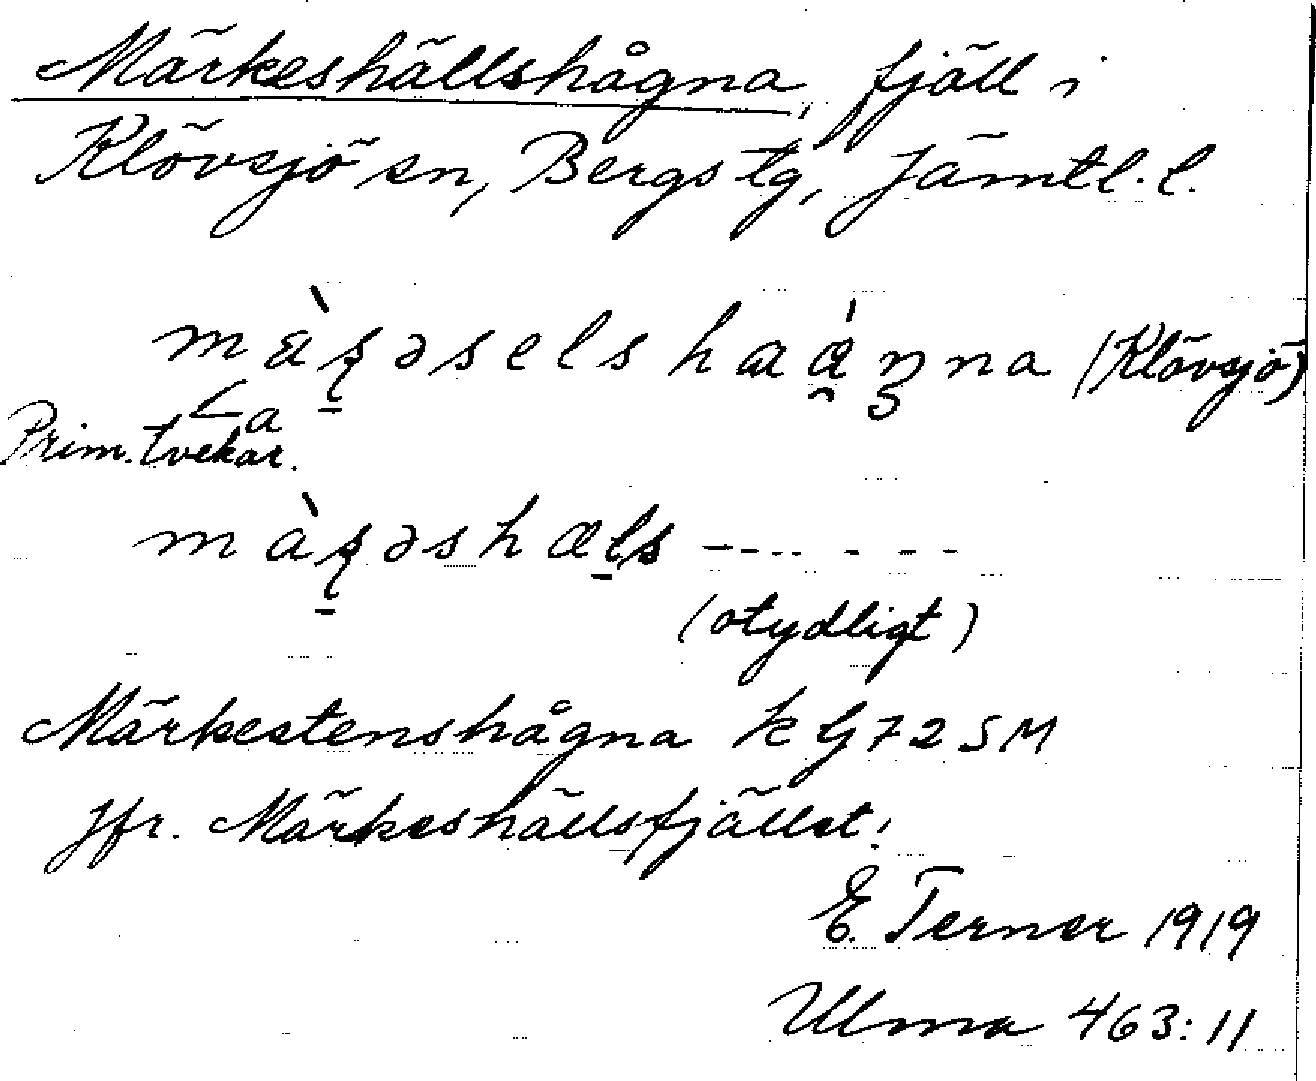 Märkeshällshågna, fjäll i
Klövsjö sn, Bergs tg, Jämtl. l.
(Klövsjö)
Prim. tvekar.
(otydligt)
Märkestenshågna k G 72 SM
Jfr. Märkeshällsfjället!
E. Terner 1919
Ulma 463:11